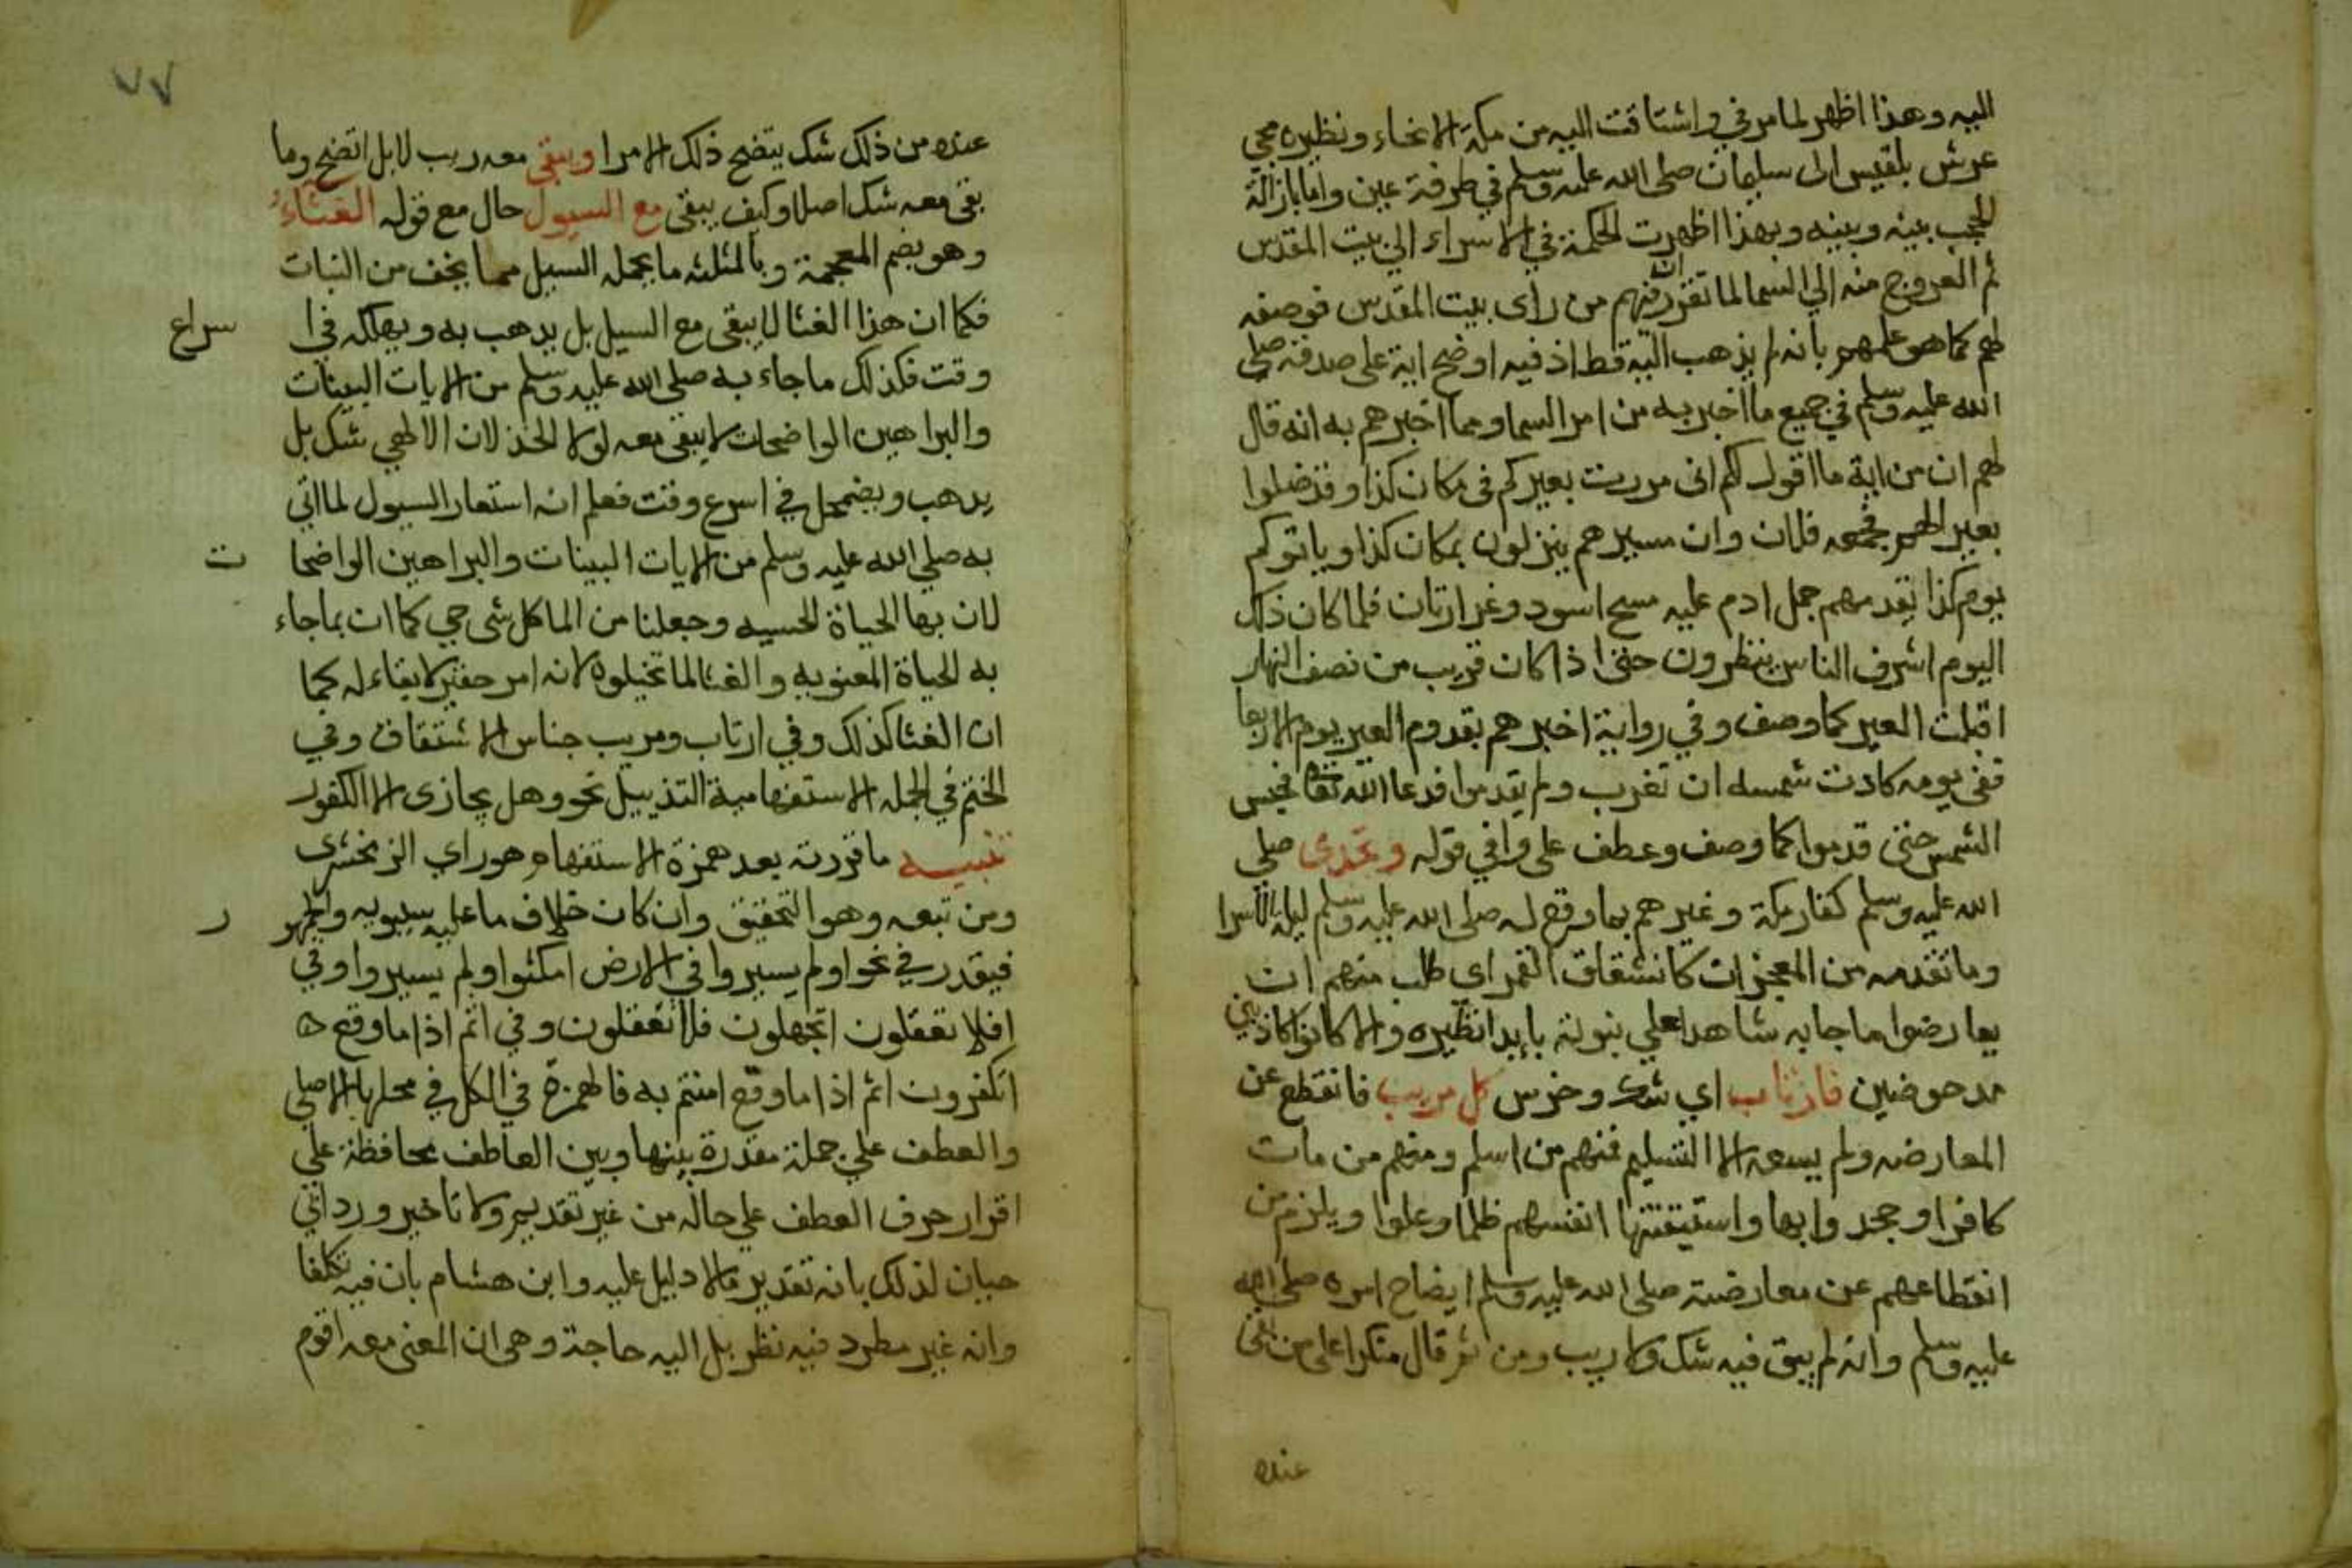 اليه وهذا اظهر لما مر في واشتاقت اليه من مكة الانحاء ونظيره مجي
عرش بلقيس الى سليمان صلى الله عليه وسلم في طرفة عين واما بازالة
الحجب بينه وبينه وبهذا اظهرت الحكمة في الاسراء الي بيت المقدس
ثم العروج منه الي السما لما تقرر ان فيهم من راى بيت المقدس فوصفه
لهم كما هو علمهم بانه لم يذهب اليه قط اذ فيه اوضح اية على صدقه صلي
الله عليه وسلم في جميع ما اخبر به من امر السما ومما اخبرهم به انه قال
لهم ان من اية ما اقول لكم اني مررت بعيركم في مكان كذا وقد ضلوا
بعير الهم فجمعه فلان وان مسيرهم ينزلون بمكان كذا وياتوكم
يوم كذا تقدمهم جمل ادم عليه مسح اسود وغرارتان فلما كان ذلك
اليوم اشرف الناس ينظرون حتى اذا كان قريب من نصف النهار
اقبلت العير كما وصف وفي رواية اخبرهم بقدوم العير يوم الاربعا
ففي يومه كادت شمسه ان تغرب ولم يقدموا فدعا الله تعالى فحبس
الشمس حتى قدموا كما وصف وعطف على وافي قوله وتحدى صلي
الله عليه وسلم كفار مكة وغيرهم بما وقع له صلى الله عليه وسلم ليلة الاسرا
وما تقدمه من المعجزات كانشقاق القمر اي طلب منهم ان
يعارضوا ما جابه شاهدا علي نبوته بابدا نظيره والا كانوا كاذبين
مدحوضين فارتاب اي شك وخرس كل مريب فانقطع عن
المعارضه ولم يسعه الا التسليم فمنهم من اسلم ومنهم من مات
كافرا وجحدوا بها واستيقنتها انفسهم ظلما وعلوا ويلزم من
انقطاعهم عن معارضته صلى الله عليه وسلم ايضاح امره صلى الله
عليه وسلم وانه لم يبق فيه شك ولا ريب ومن ثم قال منكرا على من بقي
عنده
٧٧
عنده من ذلك شك يتضح ذلك الامر او يبقى معه ريب لا بل اتضح وما
بقي معه شك اصلا وكيف يبقى مع السيول حال مع قوله الغثاء
وهو بضم المعجمة وبالمثلثه ما يحمله السيل مما يخف من النبات
فكما ان هذا الغثا لا يبقى مع السيل بل يذهب به ويهلكه في ا سراع
وقت فكذلك ما جاء به صلى الله عليه وسلم من الايات البينات
والبراهين الواضحات لا يبقى معه لولا الخذلان الالهي شك بل
يذهب ويضمحل في اسرع وقت فعلم انه استعار السيول لما اتي
به صلي الله عليه وسلم من الايات البينات والبراهين الواضحا ت
لان بها الحياة الحسيه وجعلنا من الما كل شي حي كما ان بما جاء
به الحياة المعنويه والغثا لما تخيلوه لانه امر حقير لا بقاء له كما
ان الغثا كذلك وفي ارتاب ومريب جناس الاشتقاق وفي
الختم في الجمله الاستفهامية التذييل نحو وهل يجازى الا الكفور
تنبيه ما قررته بعد همزة الاستفهام هو راي الزمخشري
ومن تبعه وهو التحقيق وان كان خلاف ما عليه سيبويه والجمهو ر
فيقدر في نحو اولم يسيروا في الارض امكثوا ولم يسيروا وفي
افلا تعقلون اتجهلون فلا تعقلون وفي اثم اذا ما وقع ه
اتكفرون اثم اذا ما وقع امنتم به فالهمزة في الكل في محلها الاصلي
والعطف علي جملة مقدرة بينها وبين العاطف محافظة علي
اقرار حرف العطف علي حاله من غير تقديم ولا تاخير ورد ابي
حيان لذلك بانه تقدير ما لا دليل عليه وابن هشام بان فيه تكلفا
وانه غير مطرد فيه نظر بل اليه حاجة وهي ان المعنى معه اقوم